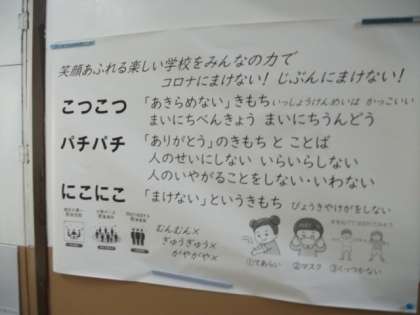 笑顔あふれる楽しい学校をみんなの力で
コロナにまけない！じぶんにまけない！
こつこつ 「あきらめない」きもち いっしょうけんめいは かっこいい
まいにちべんきょう まいにちうんどう
パチパチ 「ありがとう」のきもち と ことば
人のせいにしない いらいらしない
人のいやがることをしない・いわない
にこにこ 「まけない」というきもち びょうきやけがをしない
むんむん×
ぎゅうぎゅう×
がやがや×
①てあらい ②マスク ③くっつかない